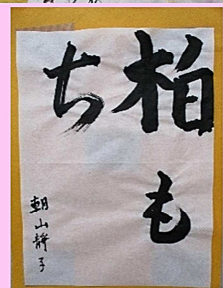 柏も
ち
朝山静子